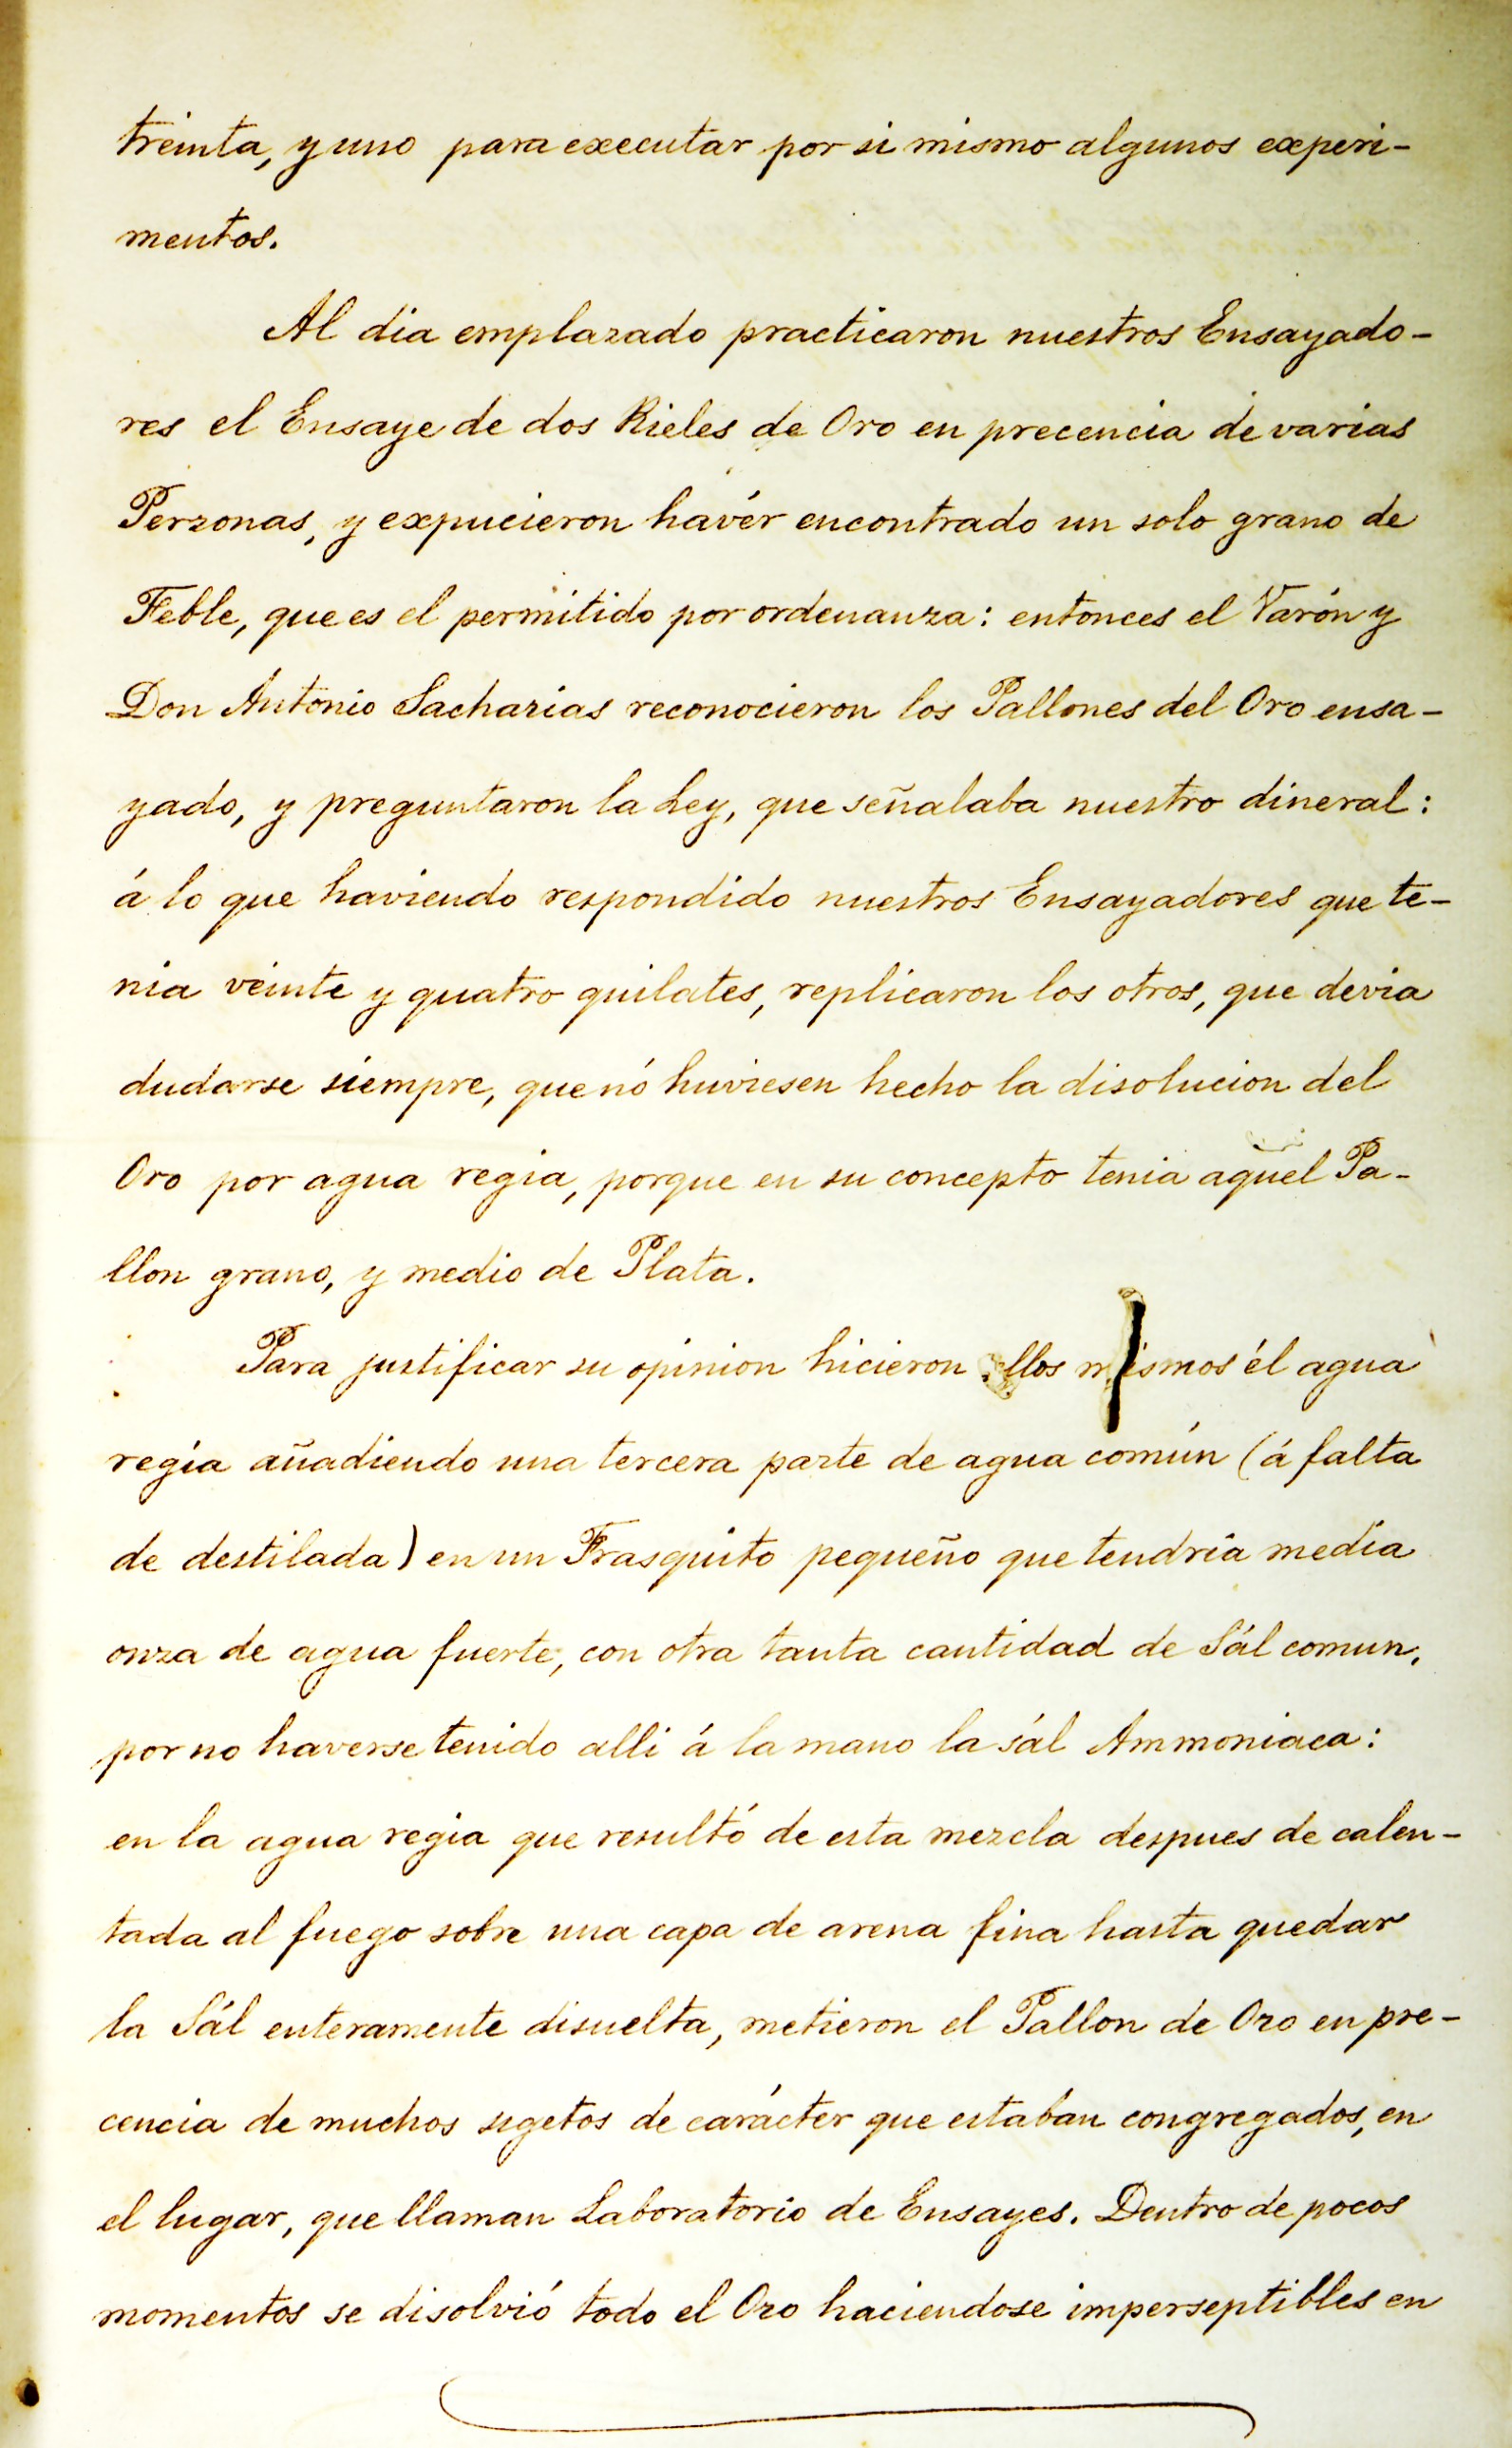 treinta, y uno para executar por si mismo algunos experi-
mentos.
Al dia emplazado practicaron nuestros Ensayado-
res el Ensaye de dos Rieles de Oro en precencia de varias
Perzonas, y expucieron havér encontrado un solo grano de
Feble, que es el permitido por ordenanza: entonces el Varón y
Don Antonio Sacharias reconocieron los Pallones del Oro ensa-
yado, y preguntaron la Ley, que señalaba nuestro dineral:
á lo que haviendo respondido nuestros Ensayadores que te-
nia veinte y quatro quilates, replicaron los otros, que devia
dudarse siempre, que nó huviesen hecho la disolucion del
Oro por agua regia, porque en su concepto tenia aquel Pa-
llon grano, y medio de Plata.
Para justificar su opinion hicieron ellos mismos él agua
regia añadiendo una tercera parte de agua común (á falta
de destilada) en un Frasquito pequeño que tendria media
onza de agua fuerte, con otra tanta cantidad de Sál comun,
por no haverse tenido alli á la mano la sál Ammoniaca:
en la agua regia que resultó de esta mezcla despues de calen-
tada al fuego sobre una capa de arena fina hasta quedar
la Sál enteramente disuelta, metieron el Pallon de Oro en pre-
cencia de muchos sugetos de carácter que estaban congregados, en
el lugar, que llaman Laboratorio de Ensayes. Dentro de pocos
momentos se disolvió todo el Oro haciendose imperseptibles en